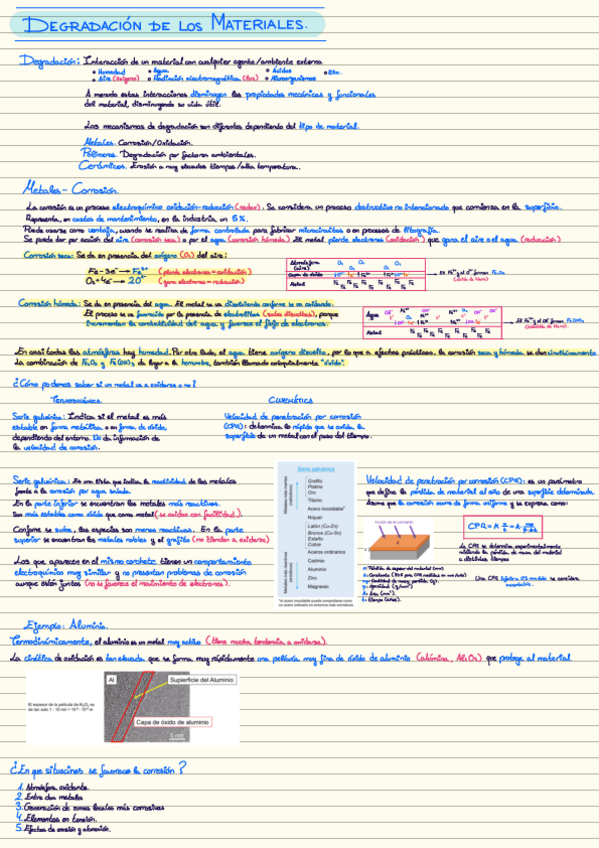 DEGRADACIÓN DE LOS MATERIALES.
Degradación: Interacción de un material con cualquier agente/ambiente externo.
• Humedad • Agua • Ácidos • Etc.
• Aire (oxígeno) • Radiación electromagnética (luz) • Microorganismos
A menudo estas interacciones disminuyen las propiedades mecánicas y funcionales
del material, disminuyendo su vida útil.
Los mecanismos de degradación son diferentes dependiendo del tipo de material.
Metales. Corrosión/Oxidación.
Polímeros. Degradación por factores ambientales.
Cerámicos. Erosión a muy elevados tiempos/alta temperatura.
Metales - Corrosión.
La corrosión es un proceso electroquímico oxidación-reducción (redox). Se considera un proceso destructivo no intencionado que comienza en la superficie.
Representa, en costes de mantenimiento, en la industria, un 5%.
Puede usarse como ventaja, cuando se realiza de forma controlada para fabricar microcircuitos o en procesos de litografía.
Se puede dar por acción del aire (corrosión seca) o por el agua (corrosión húmeda). El metal pierde electrones (oxidación) que gana el aire o el agua (reducción)
Corrosión seca: Se da en presencia del oxígeno (O₂) del aire:
Atmósfera (aire)
Capa de óxido
Metal
(pierde electrones = oxidación)
(gana electrones = reducción)
Corrosión húmeda: Se da en presencia del agua. El metal se va disolviendo conforme se va oxidando.
El proceso se ve favorecido por la presencia de electrolitos (sales disueltas), porque
incrementan la conductividad del agua, y favorece el flujo de electrones.
Agua
Metal
En casi todas las atmósferas hay humedad. Por otro lado, el agua tiene oxígeno disuelto, por lo que a efectos prácticos, la corrosión seca y húmeda se dan simultáneamente.
La combinación de Fe₂O₃ y Fe(OH)₃ da lugar a la herrumbre, también llamado coloquialmente "óxido".
¿Cómo podemos saber si un metal va a oxidarse o no?
TERMODINÁMICA CINEMÁTICA
Serie galvánica: Indica si el metal es más
estable en forma metálica o en forma de óxido,
dependiendo del entorno. No da información de
la velocidad de corrosión.
Velocidad de penetración por corrosión
(CPR): determina lo rápido que se oxida la
superficie de un metal con el paso del tiempo.
Serie galvánica: Es una lista que indica la reactividad de los metales
frente a la corrosión por agua salada.
En la parte inferior se encuentran los metales más reactivos.
Son más estables como óxido que como metal (se oxidan con facilidad).
Conforme se sube, las especies son menos reactivas. En la parte
superior se encuentran los metales nobles y el grafito (no tienden a oxidarse)
Los que aparecen en el mismo corchete tienen un comportamiento
electroquímico muy similar y no presentan problemas de corrosión
aunque estén juntos (no se favorece el movimiento de electrones).
Serie galvánica
Grafito
Platino
Oro
Titanio
Acero inoxidable*
Níquel
Latón (Cu-Zn)
Bronce (Cu-Sn)
Estaño
Cobre
Aceros ordinarios
Cadmio
Aluminio
Zinc
Magnesio
Metales más inertes (catódicos)
Metales más reactivos (anódicos)
*El acero inoxidable puede comportarse como
un acero ordinario en entornos más corrosivos
Velocidad de penetración por corrosión (CPR): es un parámetro
que define la pérdida de material al año de una superficie determinada.
Asume que la corrosión ocurre de forma uniforme y se expresa como:
La CPR se determina experimentalmente
midiendo la pérdida de masa del material
a distintos tiempos
Ejemplo: Aluminio.
Termodinámicamente, el aluminio es un metal muy activo (tiene mucha tendencia a oxidarse).
La cinética de oxidación es tan elevada que se forma muy rápidamente una película muy fina de óxido de aluminio (alúmina, Al₂O₃) que protege al material
El espesor de la película de Al₂O₃ es
de tan solo 1 - 10 nm
Al
Superficie del Aluminio
Capa de óxido de aluminio
5 nm
¿En que situaciones se favorece la corrosión?
1. Atmósfera oxidante.
2. Entre dos metales
3. Generación de zonas locales más corrosivas
4. Elementos en tensión.
5. Efectos de erosión y abrasión.